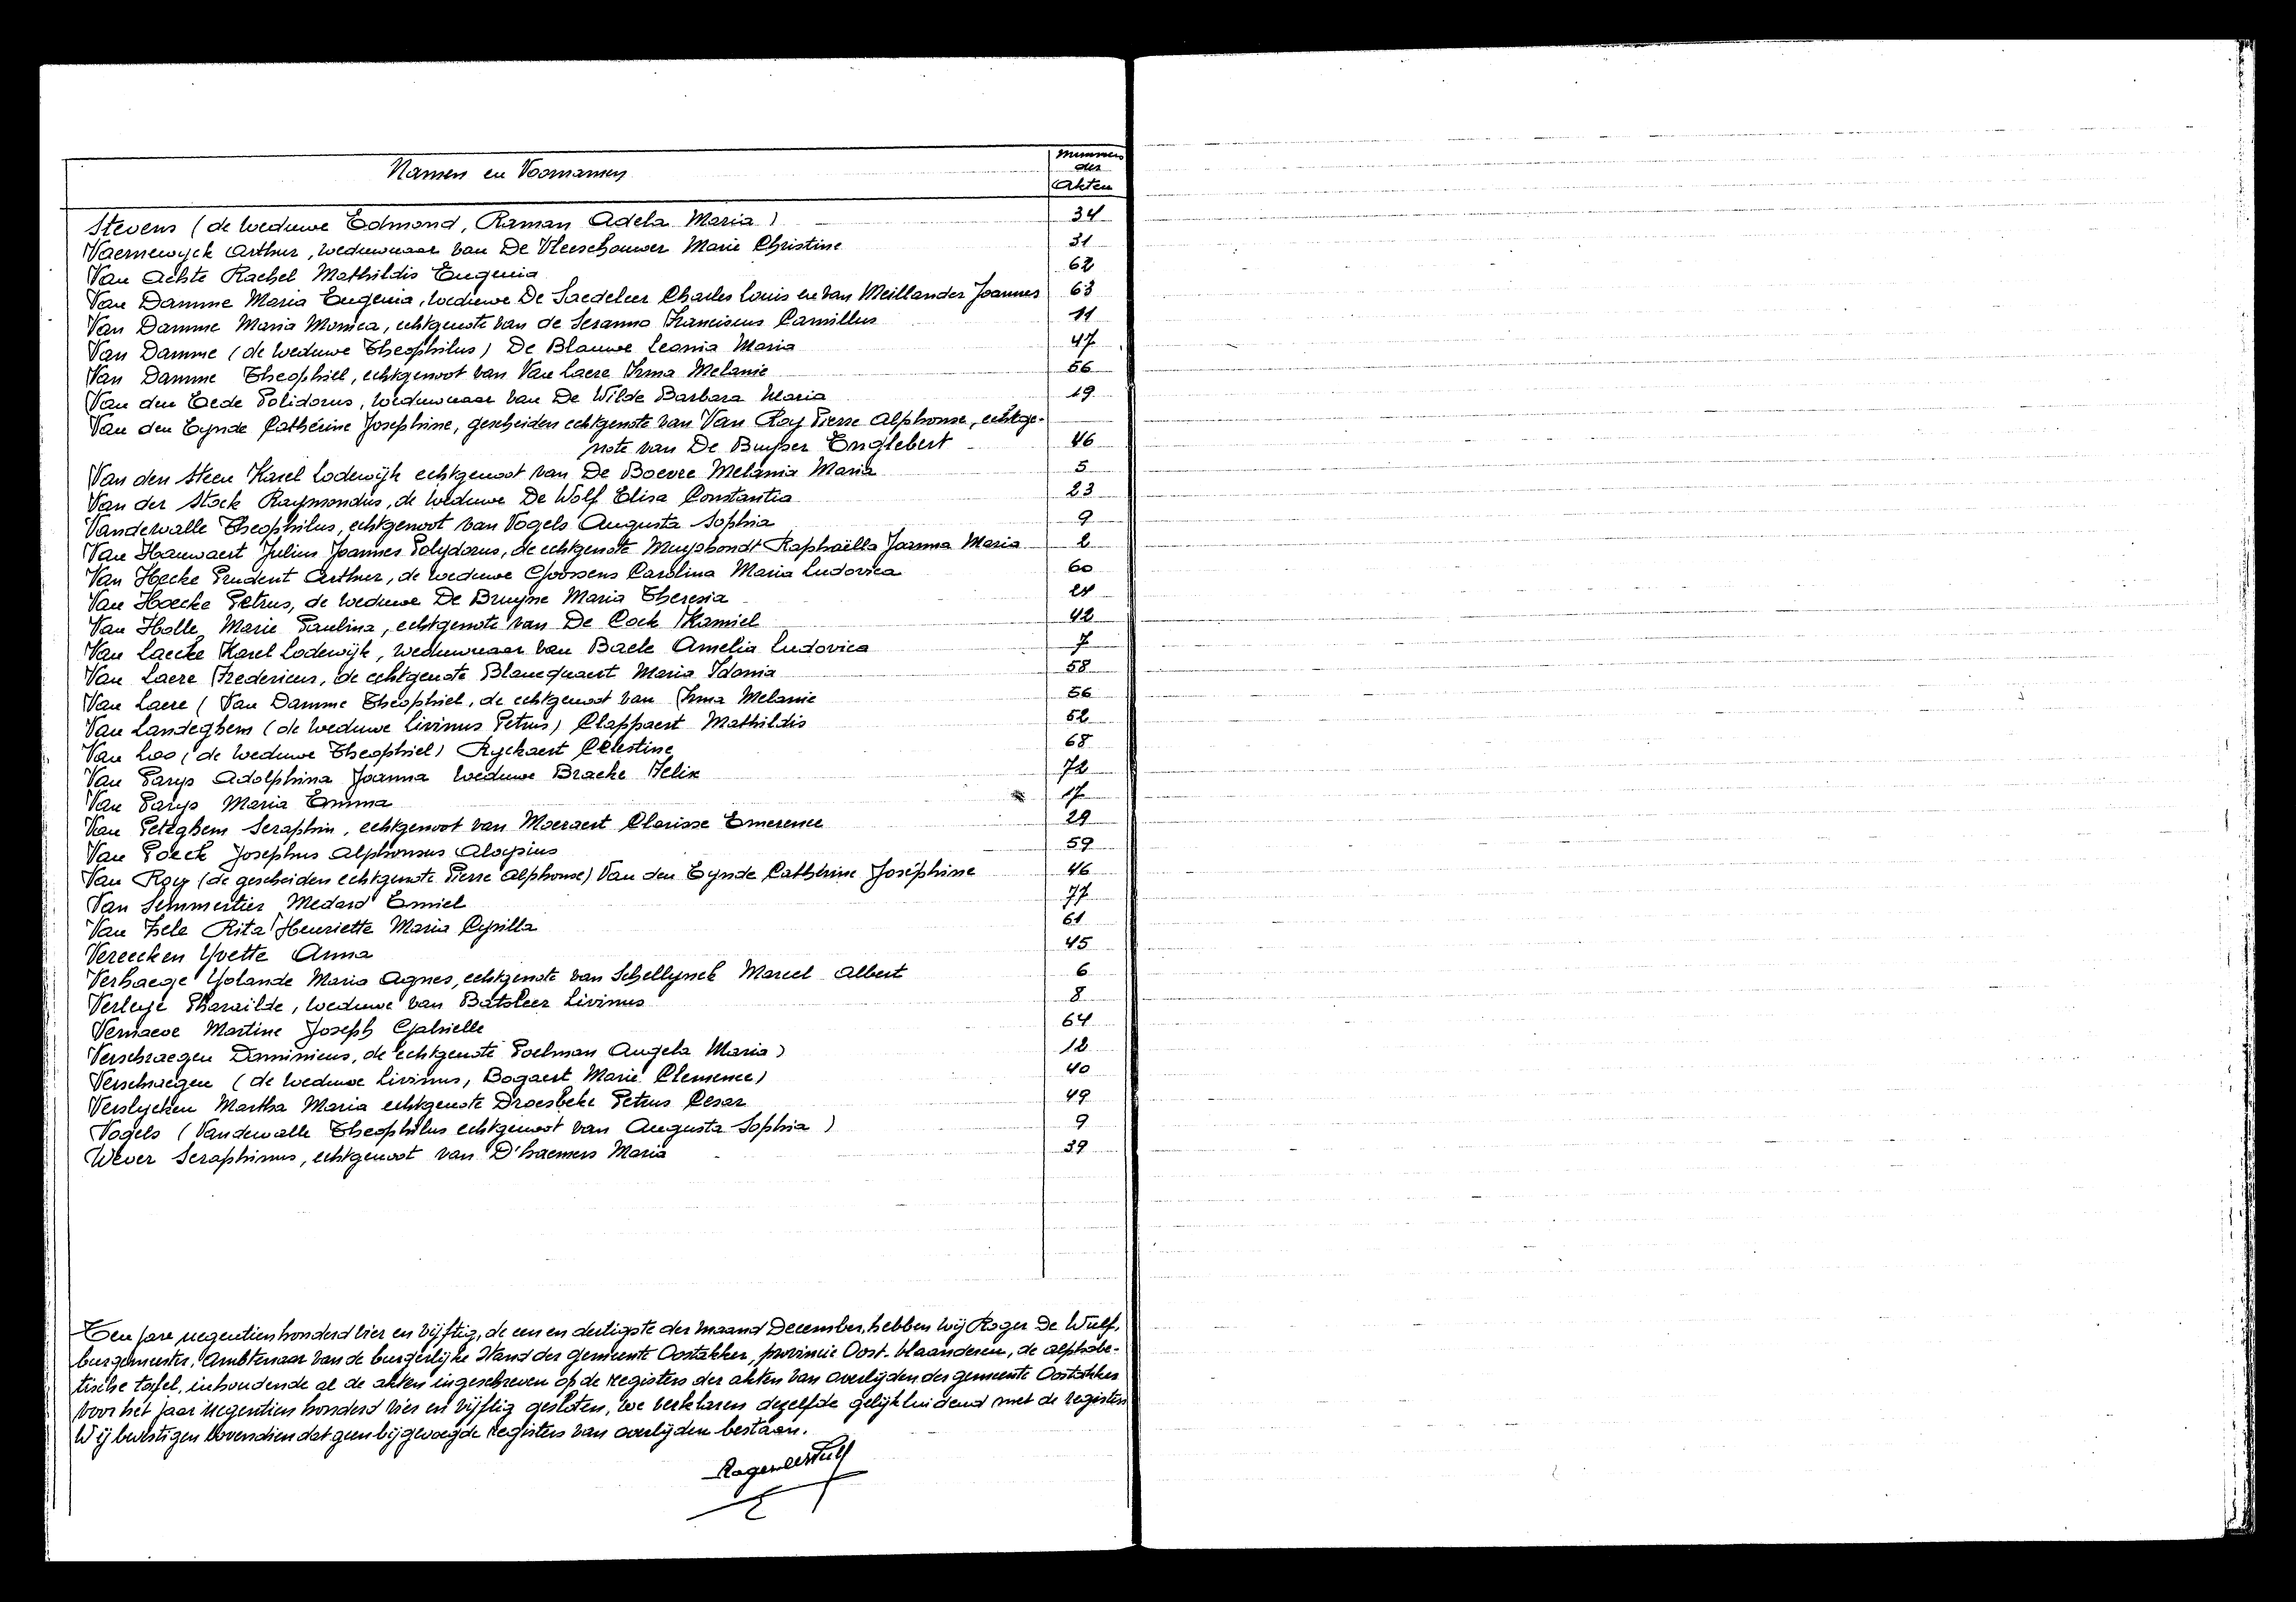 Namen en Voornamen
Nummers
der
Akten
Stevens (de weduwe Edmond, Raman Adela Maria) 34
Vaernewyck Arthur, weduwnaar van De Vleeschouwer Marie Christine 31
Van Achte Rachel Mathildis Eugenia 62
Van Damme Maria Eugenia, weduwe De Saedeleer Charles Louis en van Meillander Joannes 63
Van Damme Maria Monica, echtgenote van de Seranno Franciscus Camillus 11
Van Damme (de weduwe Theophilus) De Blauwe Leonia Maria 47
Van Damme Theophiel, echtgenoot van Van Laere Irma Melanie 56
Van den Eede Polidorus, weduwnaar van De Wilde Barbara Maria 19
Van den Eynde Cathérine Josephine, gescheiden echtgenote van Van Roy Pierre Alphonse, echtge-
note van De Buyser Englebert 46
Van den Steen Karel Lodewijk echtgenoot van De Boevre Melania Maria 5
Van der Stock Raymondus, de weduwe De Wolf Elisa Constantia 23
Vandewalle Theophilus, echtgenoot van Vogels Augusta Sophia 9
Van Hauwaert Julius Joannes Polydorus, de echtgenote Muyshondt Raphaëlla Joanna Maria 2
Van Hecke Prudent Arthur, de weduwe Goossens Carolina Maria Ludovica 60
Van Hoecke Petrus, de weduwe De Bruyne Maria Theresia 24
Van Holle Marie Paulina, echtgenote van De Cock Kamiel 42
Van Laecke Karel Lodewijk, weduwnaar van Baele Amelia Ludovica 7
Van Laere Fredericus, de echtgenote Blancquaert Maria Idonia 58
Van Laere (Van Damme Theophiel, de echtgenoot van Irma Melanie 56
Van Landeghem (de weduwe Livinus Petrus) Clappaert Mathildis 52
Van Loo (de weduwe Theophiel) Ryckaert Celestine 68
Van Parys Adolphina Joanna weduwe Bracke Felix 72
Van Parys Maria Emma 17
Van Peteghem Seraphin, echtgenoot van Moeraert Clarisse Emerence 29
Van Poeck Josephus Alphonsus Aloysius 59
Van Roy (de gescheiden echtgenote Pierre Alphonse) Van den Eynde Cathérine Joséphine 46
Van Semmertier Medard Emiel 77
Van Zele Rita Henriette Maria Cyrilla 61
Vereecken Yvette Anna 45
Verhaege Yolande Maria Agnes, echtgenote van Schellynck Marcel Albert 6
Verleye Pharaïlde, weduwe van Batsleer Livinus 8
Vernaeve Martine Joseph Gabrielle 64
Verschraegen Dominicus, de echtgenote Poelman Angela Maria) 12
Verschraegen (de weduwe Livinus, Bogaert Marie Clemence) 40
Verslycken Martha Maria echtgenote Droesbeke Petrus Cesar 49
Vogels (Vandewalle Theophilus echtgenoot van Augusta Sophia) 9
Wever Seraphinus, echtgenoot van D'haemers Maria 39
Ten jare negentienhonderd vier en vijftig, de een en dertigste der maand December, hebben wij Roger De Wulf,
burgemeester, Ambtenaar van de burgerlijke Stand der gemeente Oostakker, provincie Oost-Vlaanderen, de alphabe-
tische tafel, inhoudende al de akten ingeschreven op de registers der akten van overlijden der gemeente Oostakker
voor het jaar negentien honderd vier en vijftig gesloten, we verklaren dezelfde gelijkluidend met de registers
Wij bevestigen bovendien dat geen bijgevoegde registers van overlijden bestaan.